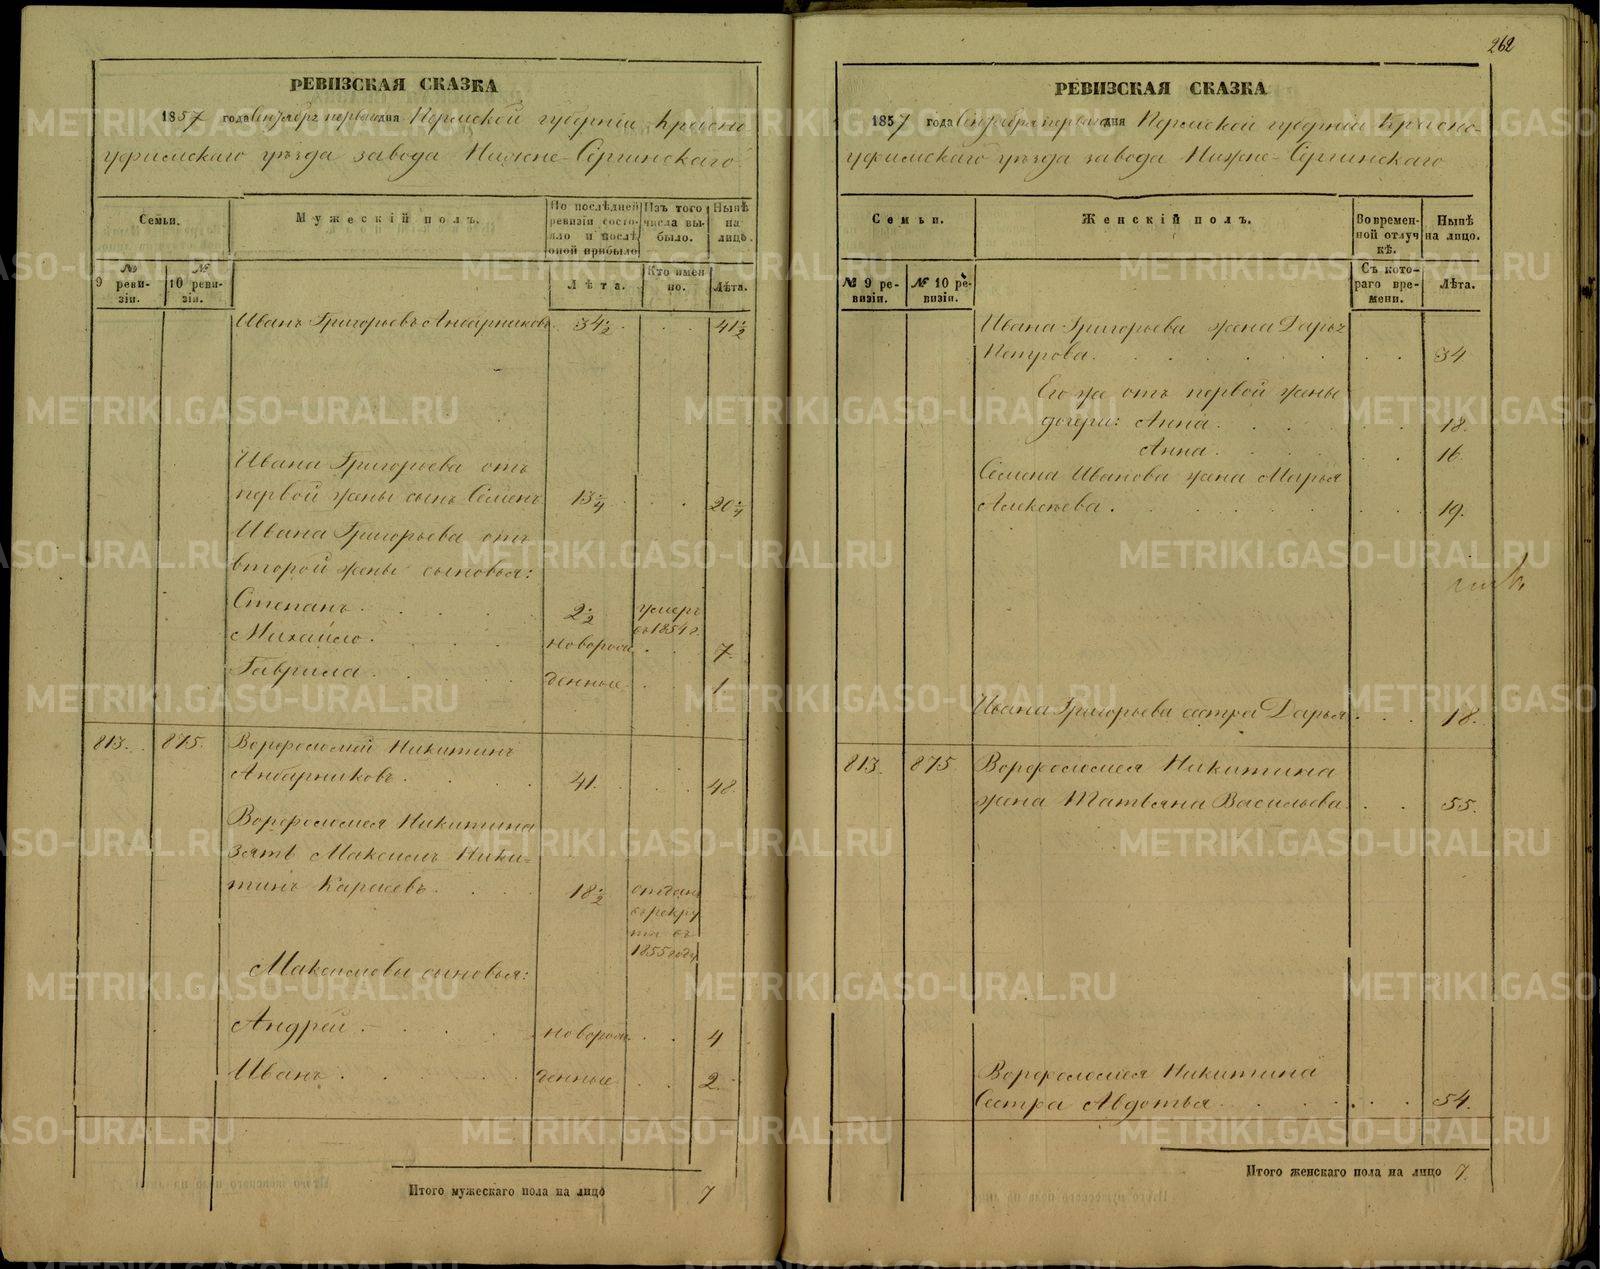 262
РЕВИЗСКАЯ СКАЗКА
1857 года Сентября первого дня Пермской губернии Красно-
уфимскаго уѣзда завода Нижне-Сергинскаго
Семьи.
Мужескій полъ.
По послѣдней ревизіи состояло и послѣ оной прибыло
Изъ того числа выбыло.
Нынѣ на лицо.
№ 9 ревизіи.
№ 10 ревизіи.
Лѣта.
Кто именно.
Лѣта.
Иванъ Григорьевъ Анбарниковъ 34 1/2 41 1/2
Ивана Григорьева отъ
первой жены сынъ Семенъ 13 1/4 20 1/4
Ивана Григорьева отъ
второй жены сыновья:
Степанъ 2 1/2 умеръ въ 1854 г.
Михайло новорож 7
Гаврила денные 1
813. 875. Ворфоломей Никитинъ
Анбарниковъ 41. 48
Ворфоломея Никитина
зять Максимъ Ники-
тинъ Карасевъ 18 1/2 отданъ
въ рекру
ты въ
1855 году
Максимовы сыновья:
Андрей новорож 4
Иванъ денные 2
Итого мужескаго пола на лицо 7
РЕВИЗСКАЯ СКАЗКА
1857 года Сентября первого дня Пермской губернии Красно-
уфимскаго уѣзда завода Нижне-Сергинскаго
Семьи.
Женскій полъ.
Во временной отлучкѣ.
Нынѣ на лицо.
№ 9 ревизіи.
№ 10 ревизіи.
Съ котораго времени.
Лѣта.
Ивана Григорьева жена Дарья
Петрова. 34
Его же отъ первой жены
дочери: Анна 18.
Анна 16
Семена Иванова жена Марья
Алексѣева 19.
Ивана Григорьева сестра Дарья 18.
813. 875 Ворфоломея Никитина
жена Татьяна Васильева 55.
Ворфоломея Никитина
Сестра Авдотья 54.
Итого женскаго пола на лицо 7.
METRIKI.GASO-URAL.RU